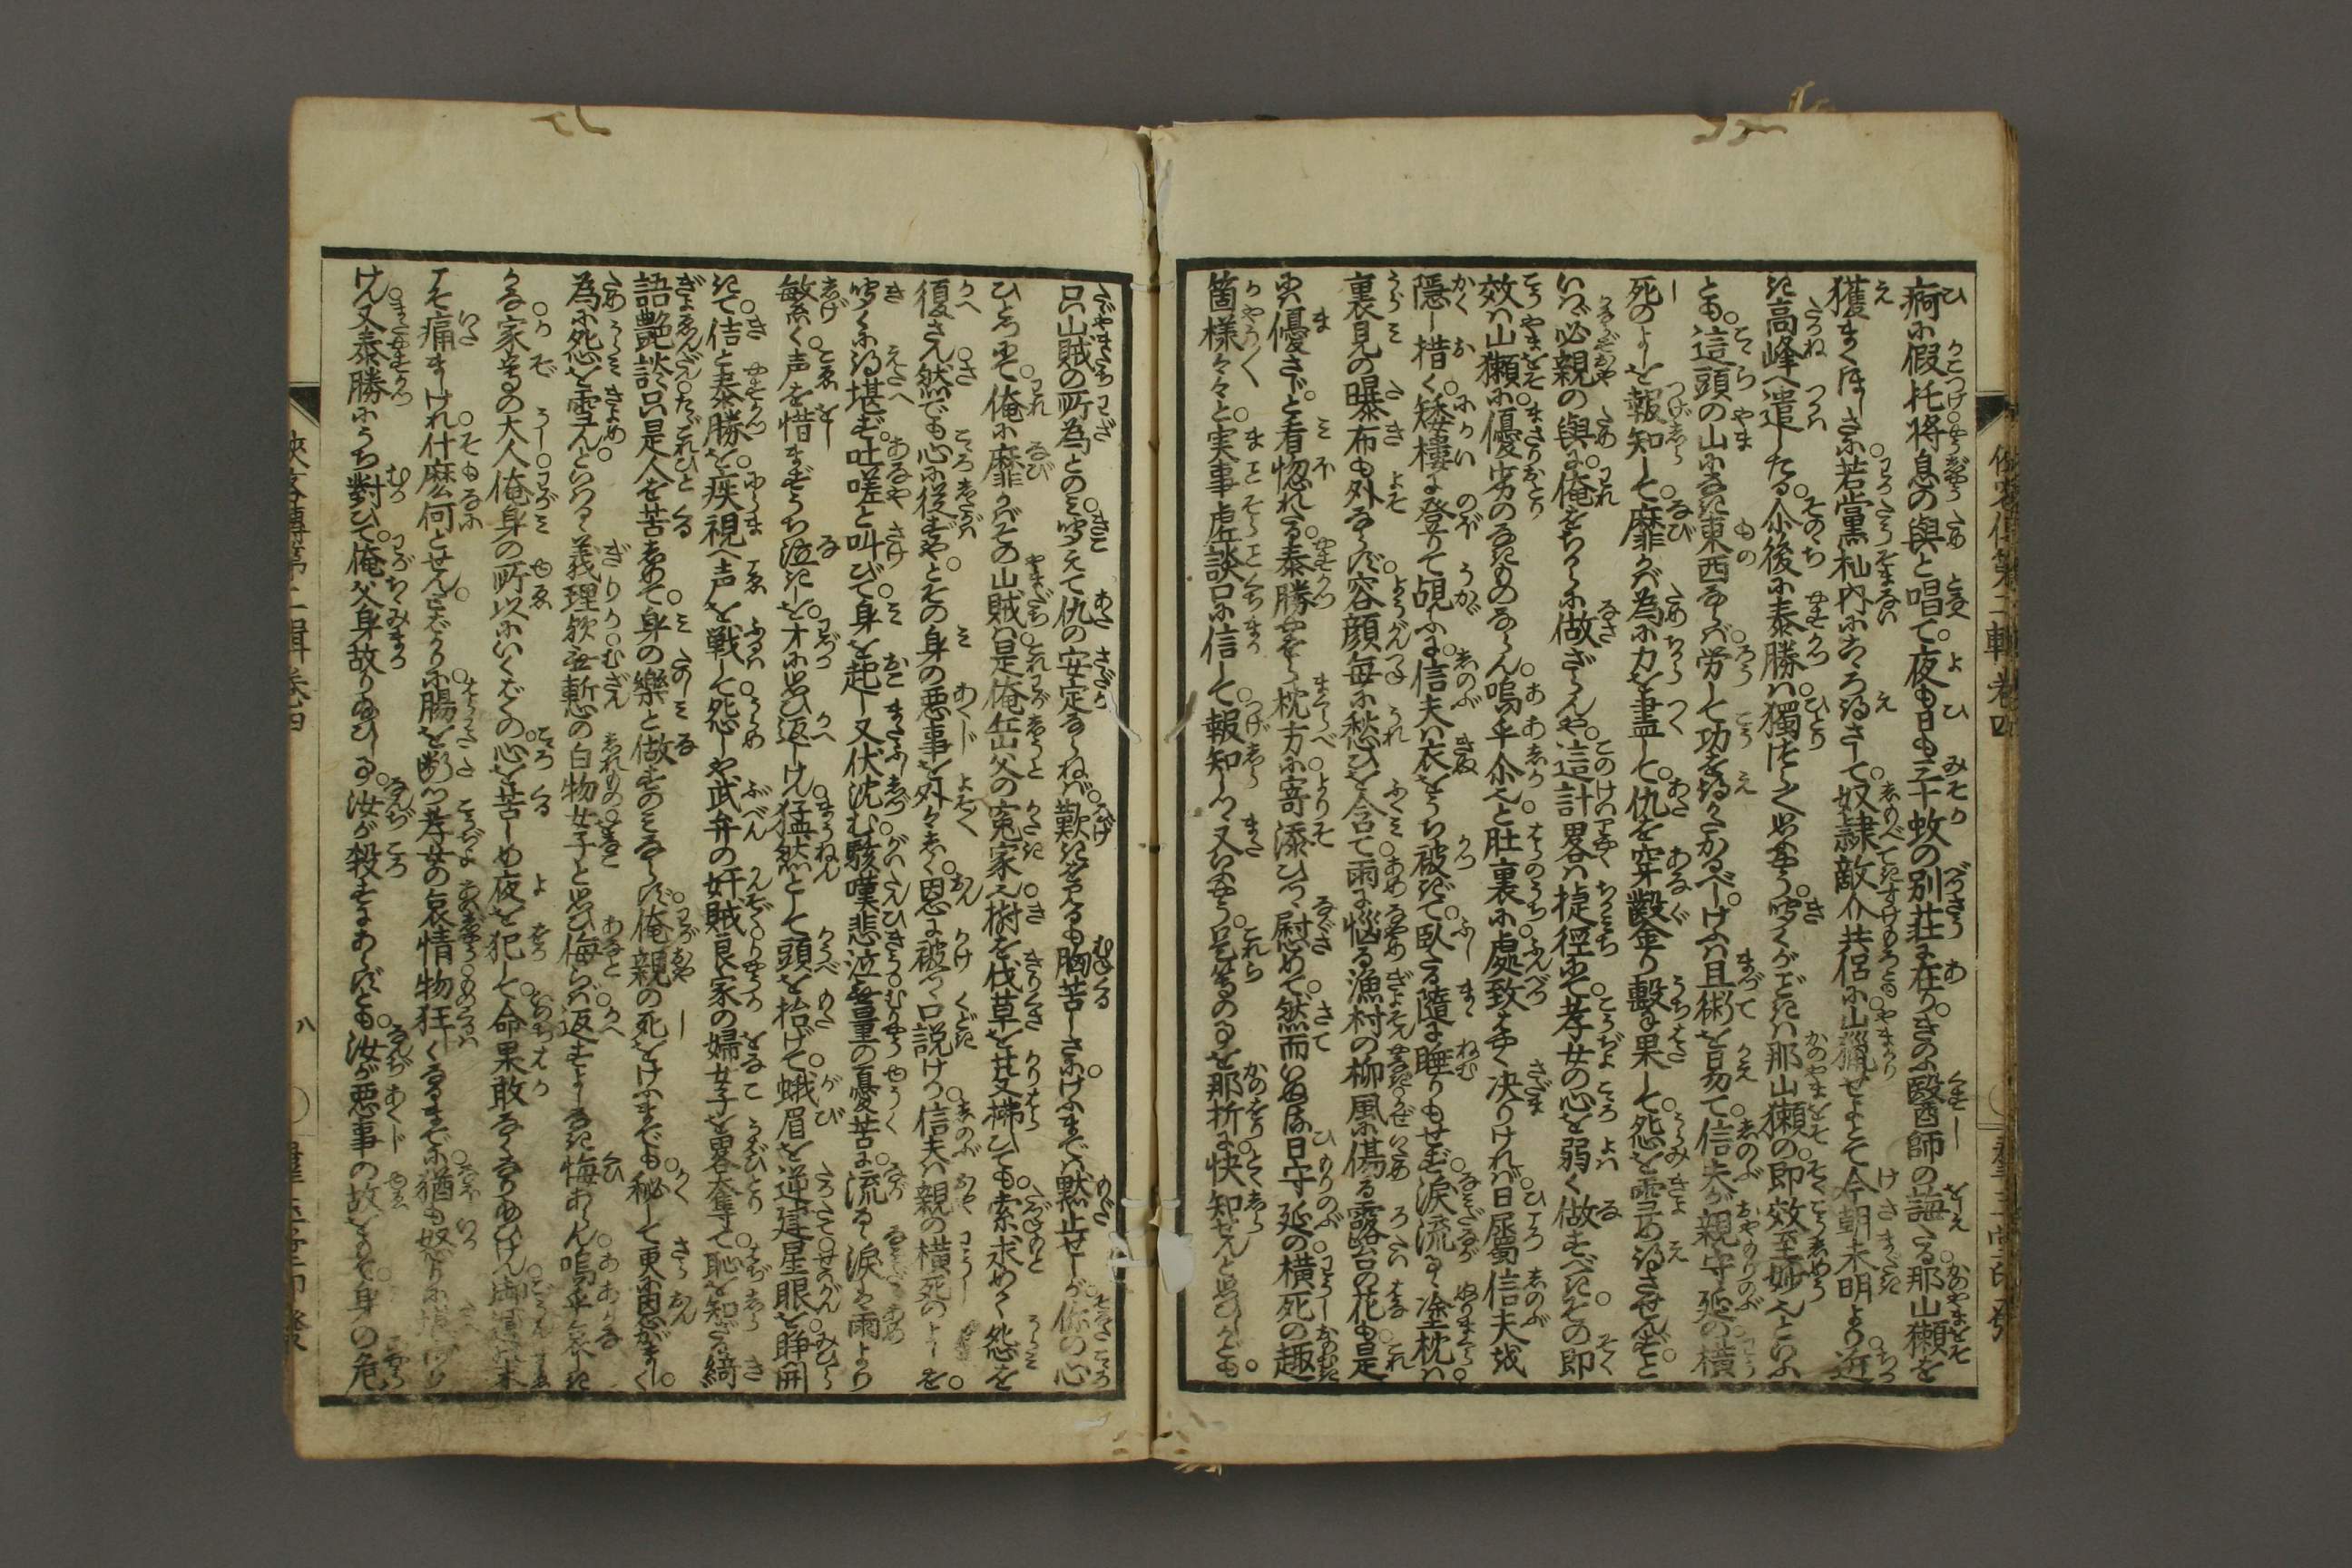 痾に假托将息の與と唱て。夜も日も三十蚊の別荘に在り。きのふ醫師の誨たる那山獺を
獲まくほしさに若黨杣内にこゝろ得さして。奴隷敵介共侶に山獵せよとて今朝未明より近
き高峰へ遣したる。尒後に泰勝は獨つく〴〵思ふやう。聞くがごときは那山獺の即效至妙也といふ
とも。這頭の山になき東西ならば労して功を得がたかるべし。けふは且術を易て。信夫が親守延の横
死のよしを報知して靡かば為に力を盡して。仇を穿鑿り撃も果して怨を雪め得させんずと
いはゞ必親の與に。俺をちからに做ざらんや。這計畧は捷徑にて。孝女の心を弱く做すべきその即
效は山獺に優劣のなきものならん。嗚乎尒也と肚裏に。處致はやく决りければ日属信夫を
隠し措く矮樓に登りて覘ふに。信夫は衣をうち被ぎて。臥たる隨に睡りもせず。涙流るゝ塗枕は
裏見の曝布も外ならず。容顔毎に愁ひを含て雨に惱る漁村の柳風に傷る露台の花も是
には優さじと看惚れたる。泰勝やをら枕方に寄添ひつゝ慰めて。然而いぬる日守延の横死の趣
箇様々々と実事虚談口に信して報知つゝ又いふやう。是等のよしを那折に快知せんと思ひしかども。
只山賊の所為とのみ。聞えて仇の安定ならねば。歎きを見るも胸苦しさに。けふまでは黙止せしが。你の心
ひとつにて。俺に靡かばその山賊は是俺岳父の寃家也。樹を伐草を芟拂ひても。索求めて怨を
復さん。然でも心に從ずや。とその身の悪事を外々しく。恩に被つゝ口説けり。信夫は親の横死のよしを。
聞くに得堪ず。吐嗟と叫びて。身を起し又伏沈む。駭嘆悲泣無量の憂苦に。流るゝ涙は雨より
繁く。声を惜まずうち泣きしを。才に思ひ返しけん。猛然として頭を抬げて。蛾眉を逆建星眼を睁開
きて。佶と泰勝を。疾視へ声を戦して。怨しや武弁の奸賊良家の婦女子を畧奪て。恥を知ざる綺
語艶談。只是人を苦しめて。身の樂と做すのみならず。俺親の死をけふまでも。秘して更に恩がまし。
為に怨を雪んといはるゝ義理歟無慙の白物。女子と思ひ侮らば返すよしなき悔あらん。嗚乎哀しき
かな家尊の大人。俺身の所以にいくばくの。心を苦しめ夜を犯して。命果敢なくなり給ひけん。
こそ痛ましけれ。什麽何とせん。とばかりに。腸を断つ孝女の哀情。物狂しくなるまでに。猶も怒
けん。又泰勝にうち對ひて。俺父身故り給ひしは。汝が殺すにあらずとも。汝が悪事の故をもて。身の危